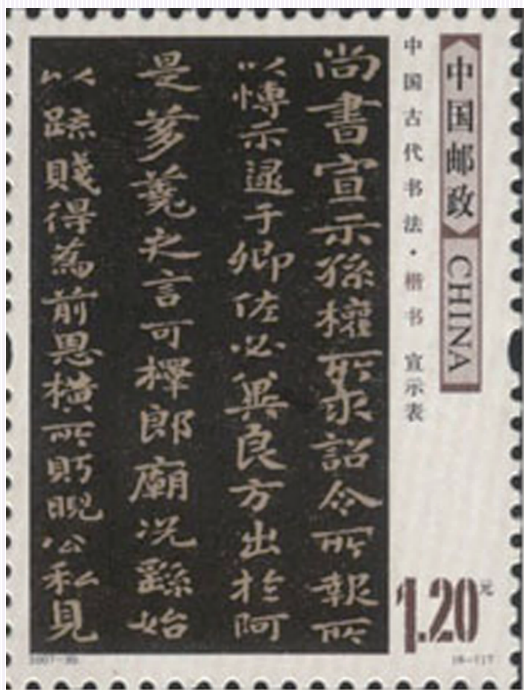 中国邮政 CHINA
中国古代书法·楷书 宣示表
尚書宣示孫權所求詔令所報所
以愽示逮于卿佐必冀良方出於阿
是芻蕘之言可擇郎廟況繇始
以疏賤得為前恩橫所眄睨公私見
1.20元
2007-30
(6-1)T